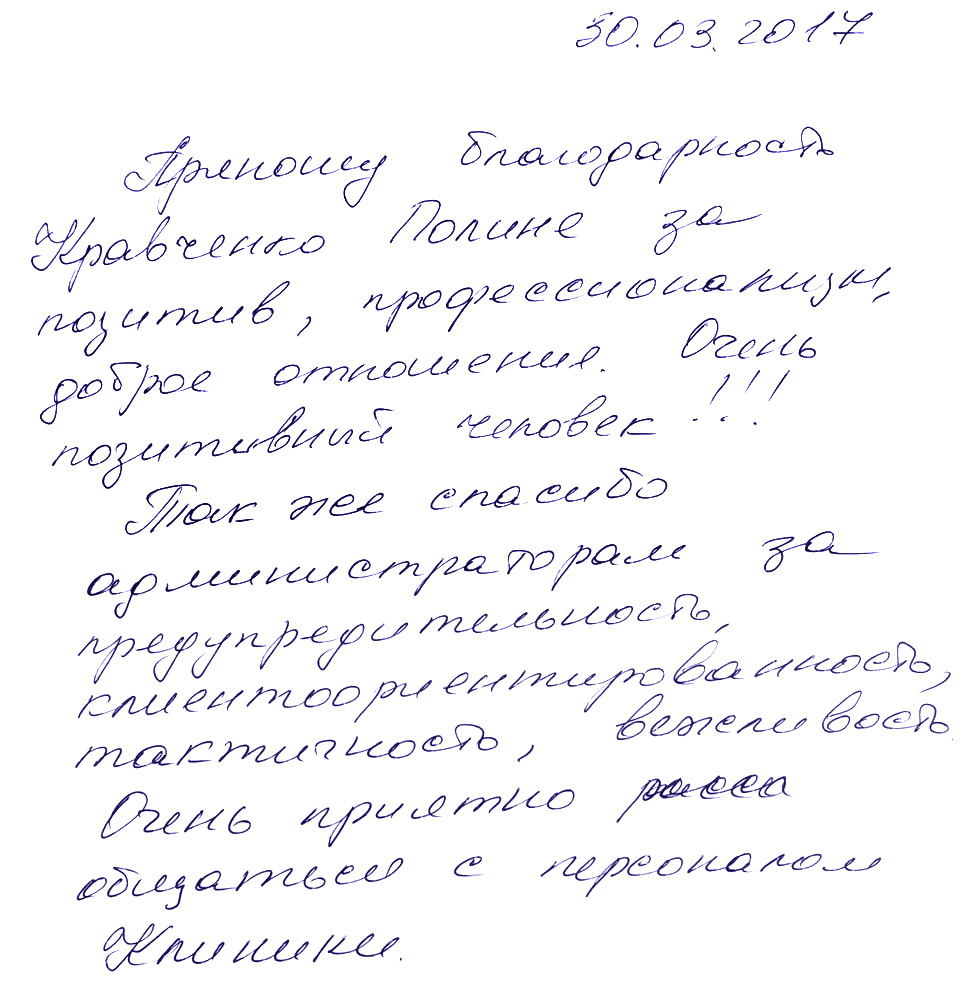 30.03.2017
Приношу благодарность
Кравченко Полине за
позитив, профессионализм,
доброе отношение. Очень
позитивный человек!!!
Так же спасибо
администраторам за
предупредительность,
клиентоориентированность,
тактичность, вежливость.
Очень приятно
общаться с персоналом
Клиники.